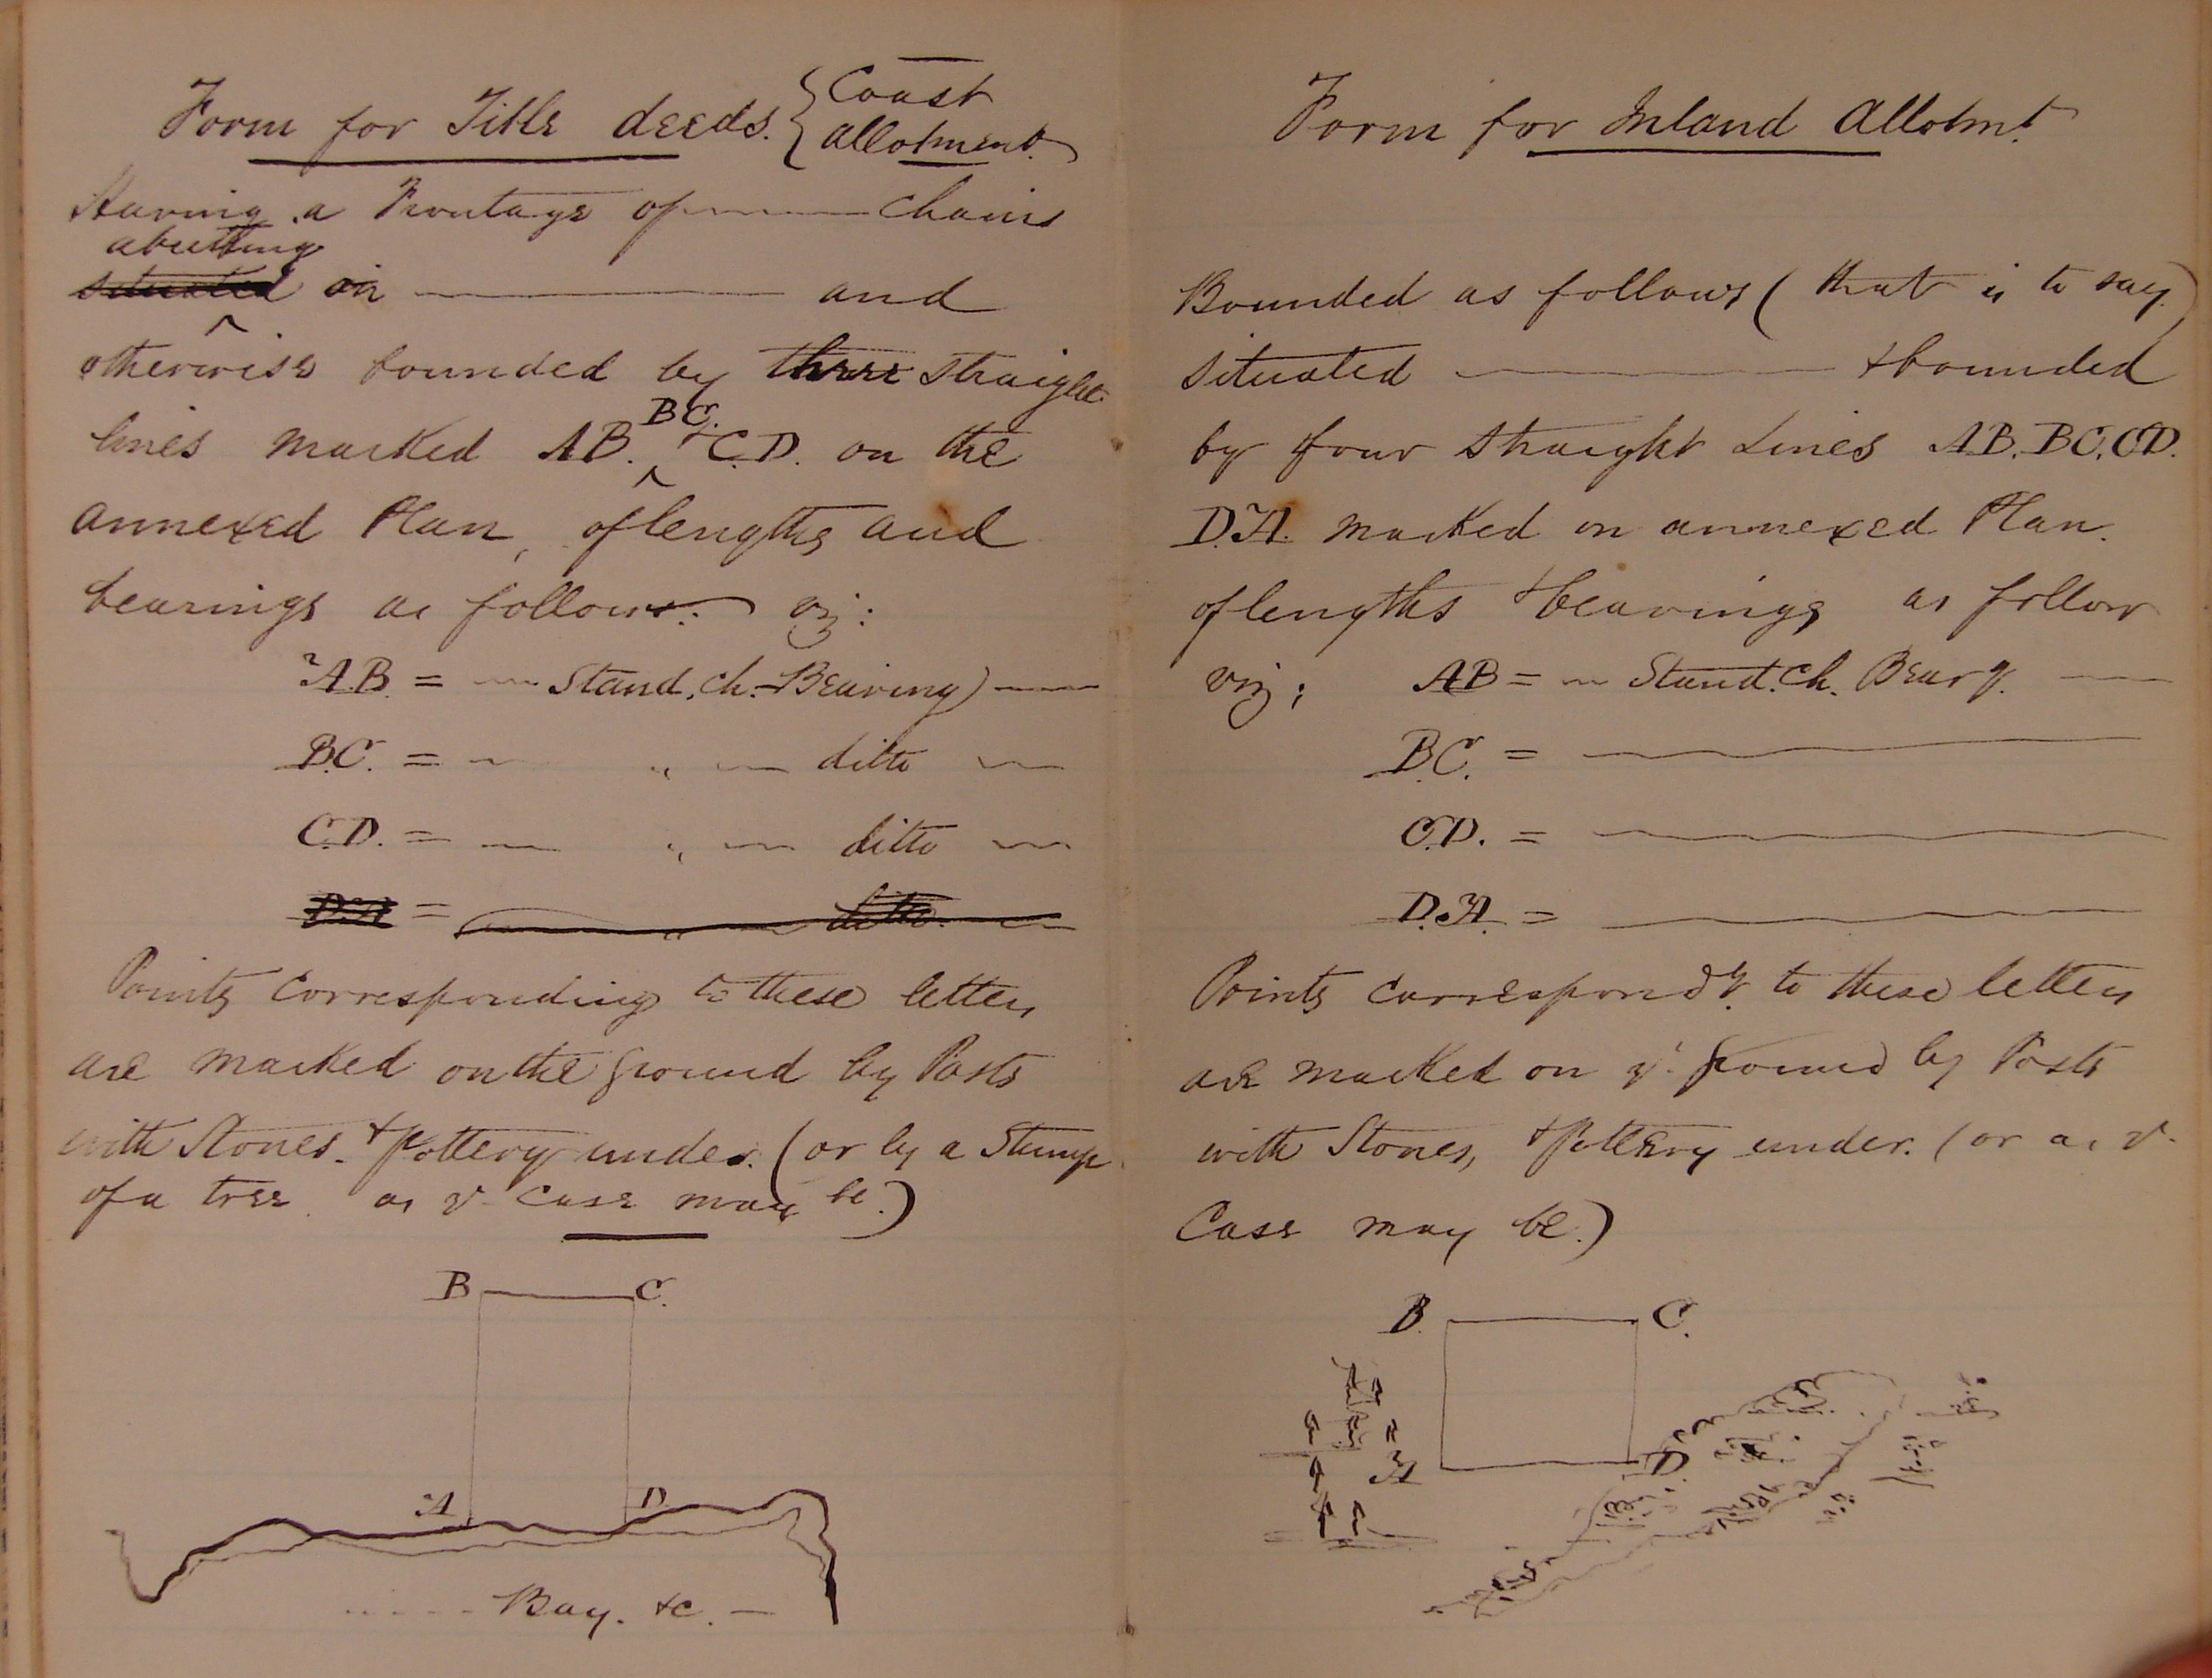 Form for Title deeds. { Coast
allotment.
Having a Frontage of ——— chains
abutting
situated on ——— and
otherwise bounded by three straight
lines marked AB. BC. & C.D. on the
annexed Plan, of lengths and
bearings as follows: viz:
A.B. = — Stand. Ch. - Bearing) —
B.C. = — " — ditto —
C.D. = — " — ditto —
D.A. = — ditto. —
Points corresponding to these letters
are marked on the ground by Posts
with Stones. & Pottery under. (or by a Stump
of a tree. as ye case may be.)
B C.
A D
..... Bay. &c. —
Form for Inland Allotmt.
Bounded as follows (that is to say)
situated ——— & bounded
by four straight Lines AB. BC. CD.
D.A. marked on annexed Plan.
of lengths & bearings as follow
viz; AB = — Stand. Ch. Bearg. —
B.C. = ———
C.D. = ———
D.A. = ———
Points correspondg. to these letters
are marked on ye ground by Posts
with Stones, & Pottery under. (or as ye
Case may be.)
B. C.
A D.